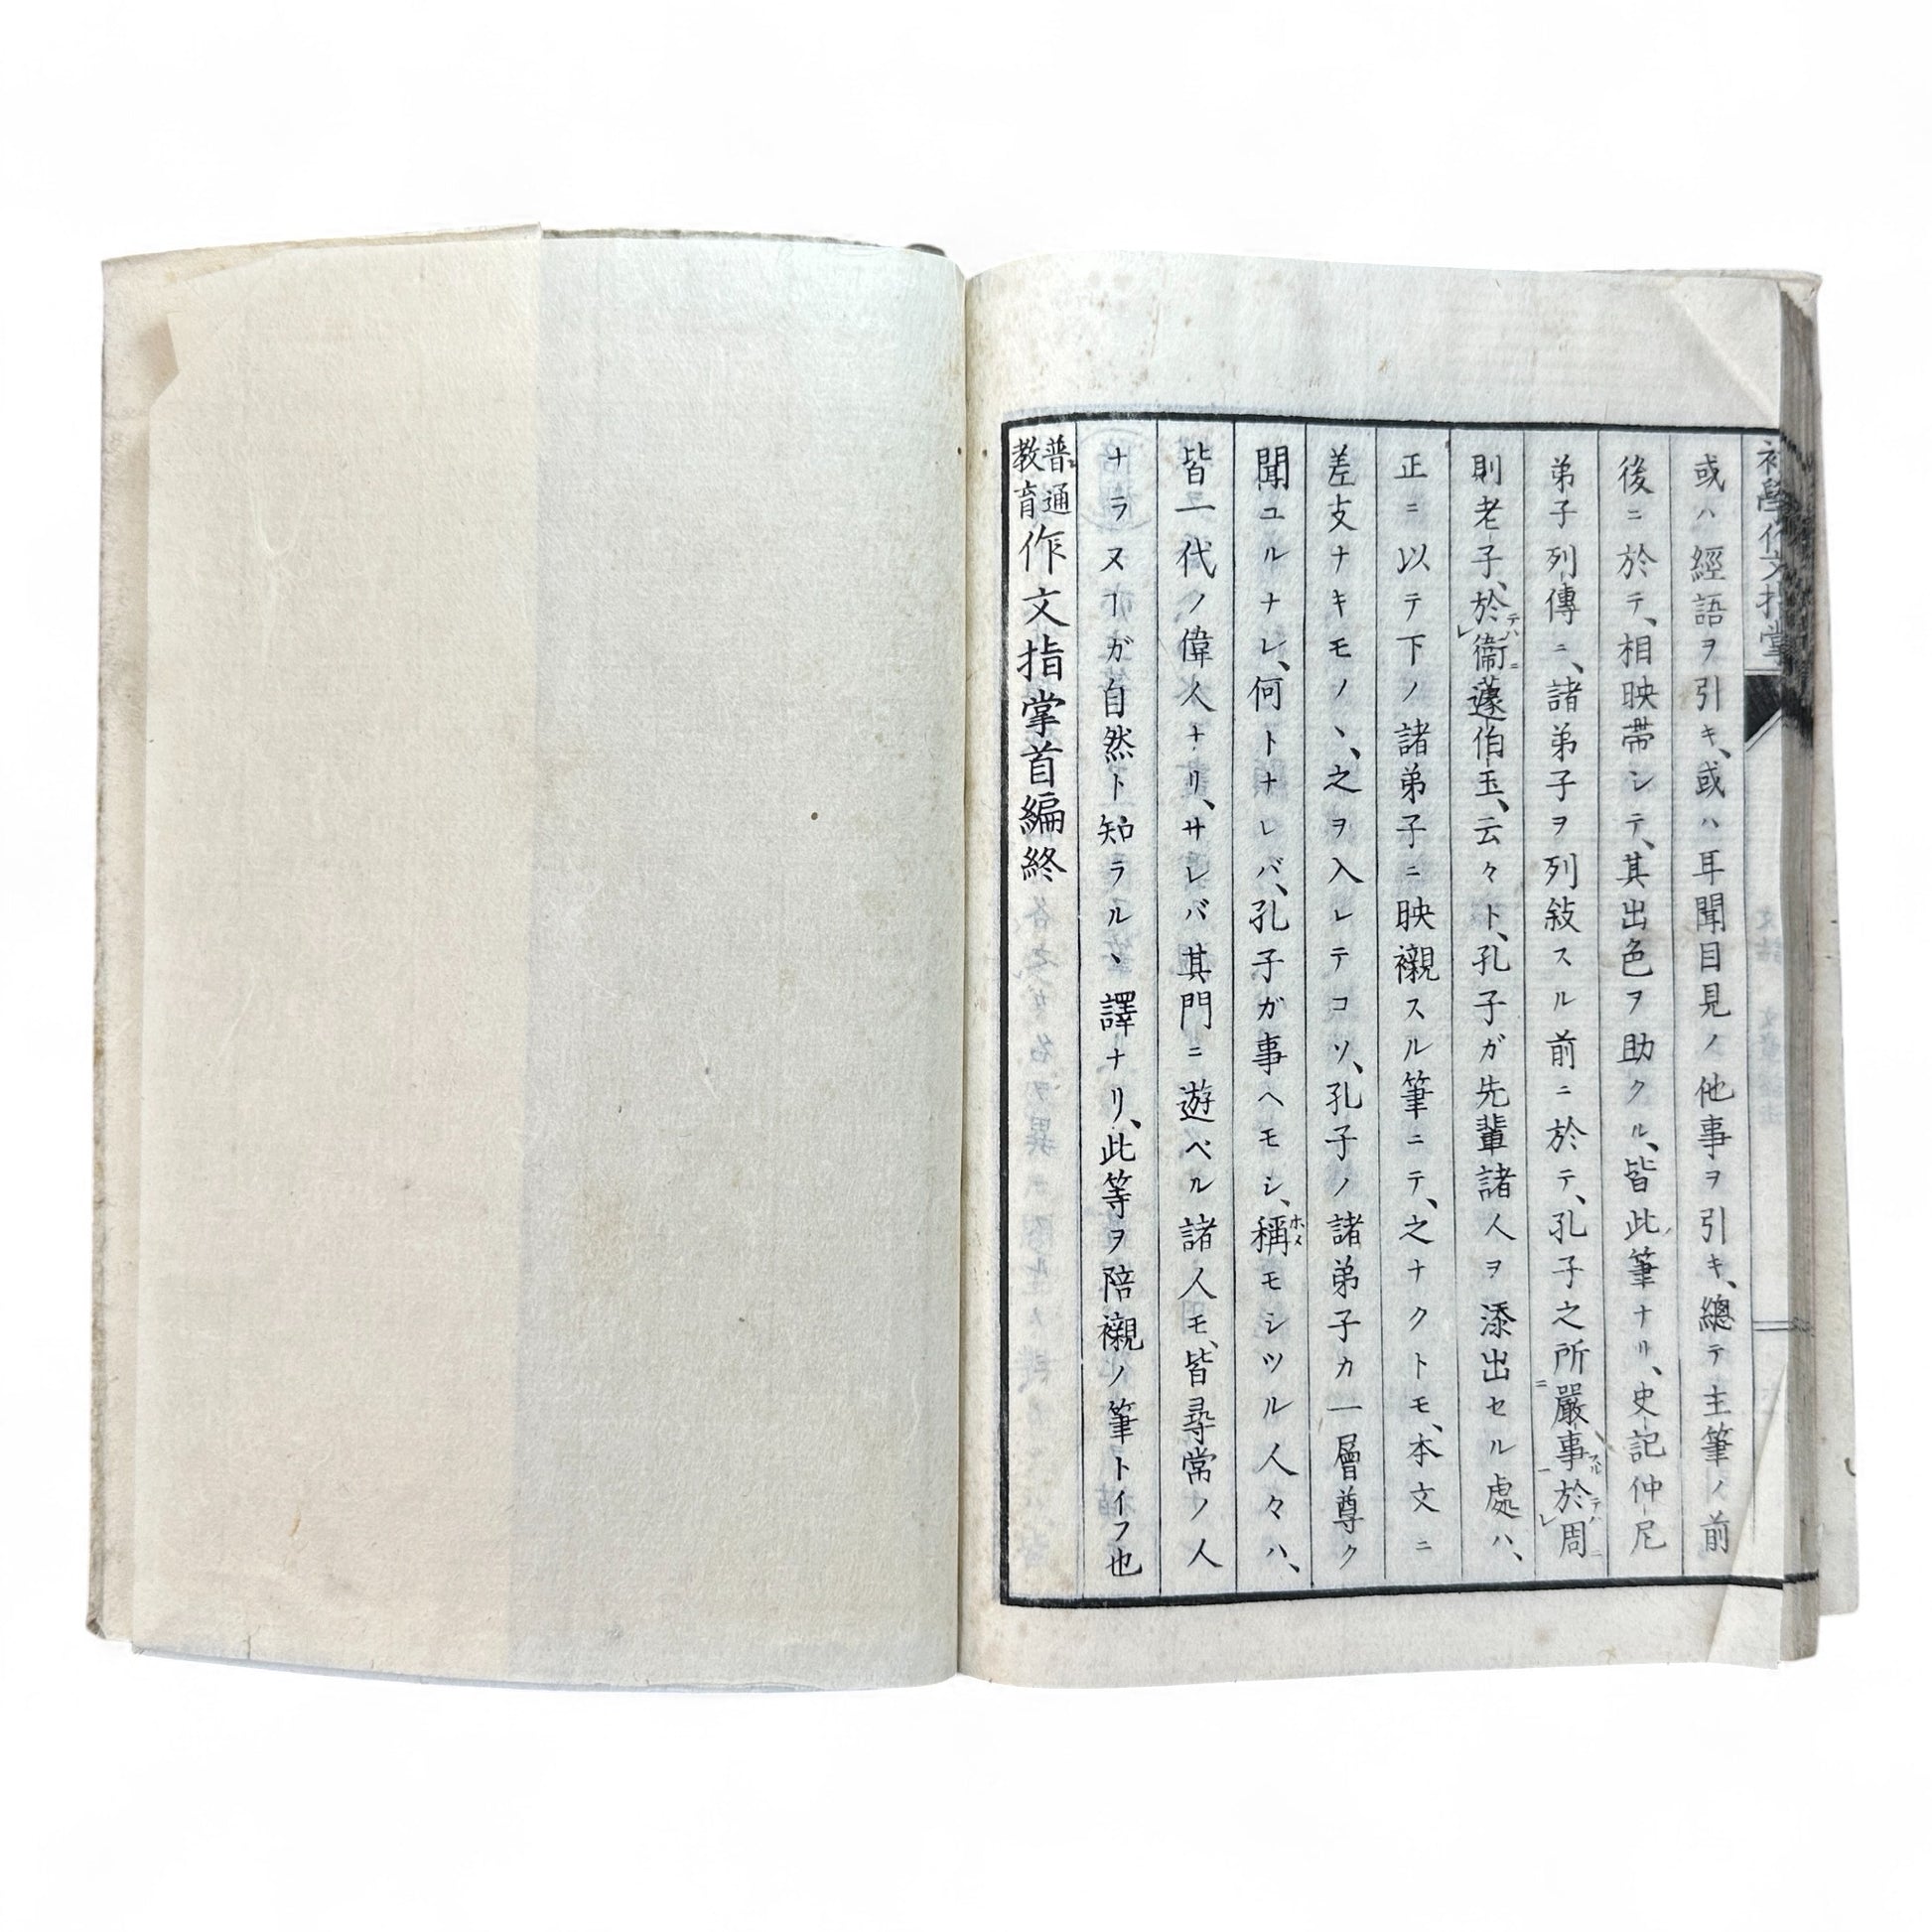 初學作文指掌
或ハ經語ヲ引キ、或ハ耳聞目見ノ他事ヲ引キ、總テ主筆ノ前
後ニ於テ、相映帶シテ、其出色ヲ助クル、皆此筆ナリ、史記仲尼
弟子列傳ニ、諸弟子ヲ列敍スル前ニ於テ、孔子之所㆓嚴事㆒スル於テハ㆑周ニ
則老子、於テハ㆑衞ニ蘧伯玉、云々ト、孔子ガ先輩諸人ヲ添出セル處ハ、
正ニ以テ下ノ諸弟子ニ映襯スル筆ニテ、之ナクトモ、本文ニ
差支ナキモノヽ、之ヲ入レテコソ、孔子ノ諸弟子カ一層尊ク
聞ユルナレ、何トナレバ、孔子ガ事ヘモシ、稱ホメモシツル人々ハ、
皆一代ノ偉人ナリ、サレバ其門ニ遊ベル諸人モ、皆尋常ノ人
ナラヌヿガ自然ト知ラルヽ譯ナリ、此等ヲ陪襯ノ筆トイフ也
普通教育作文指掌首編終